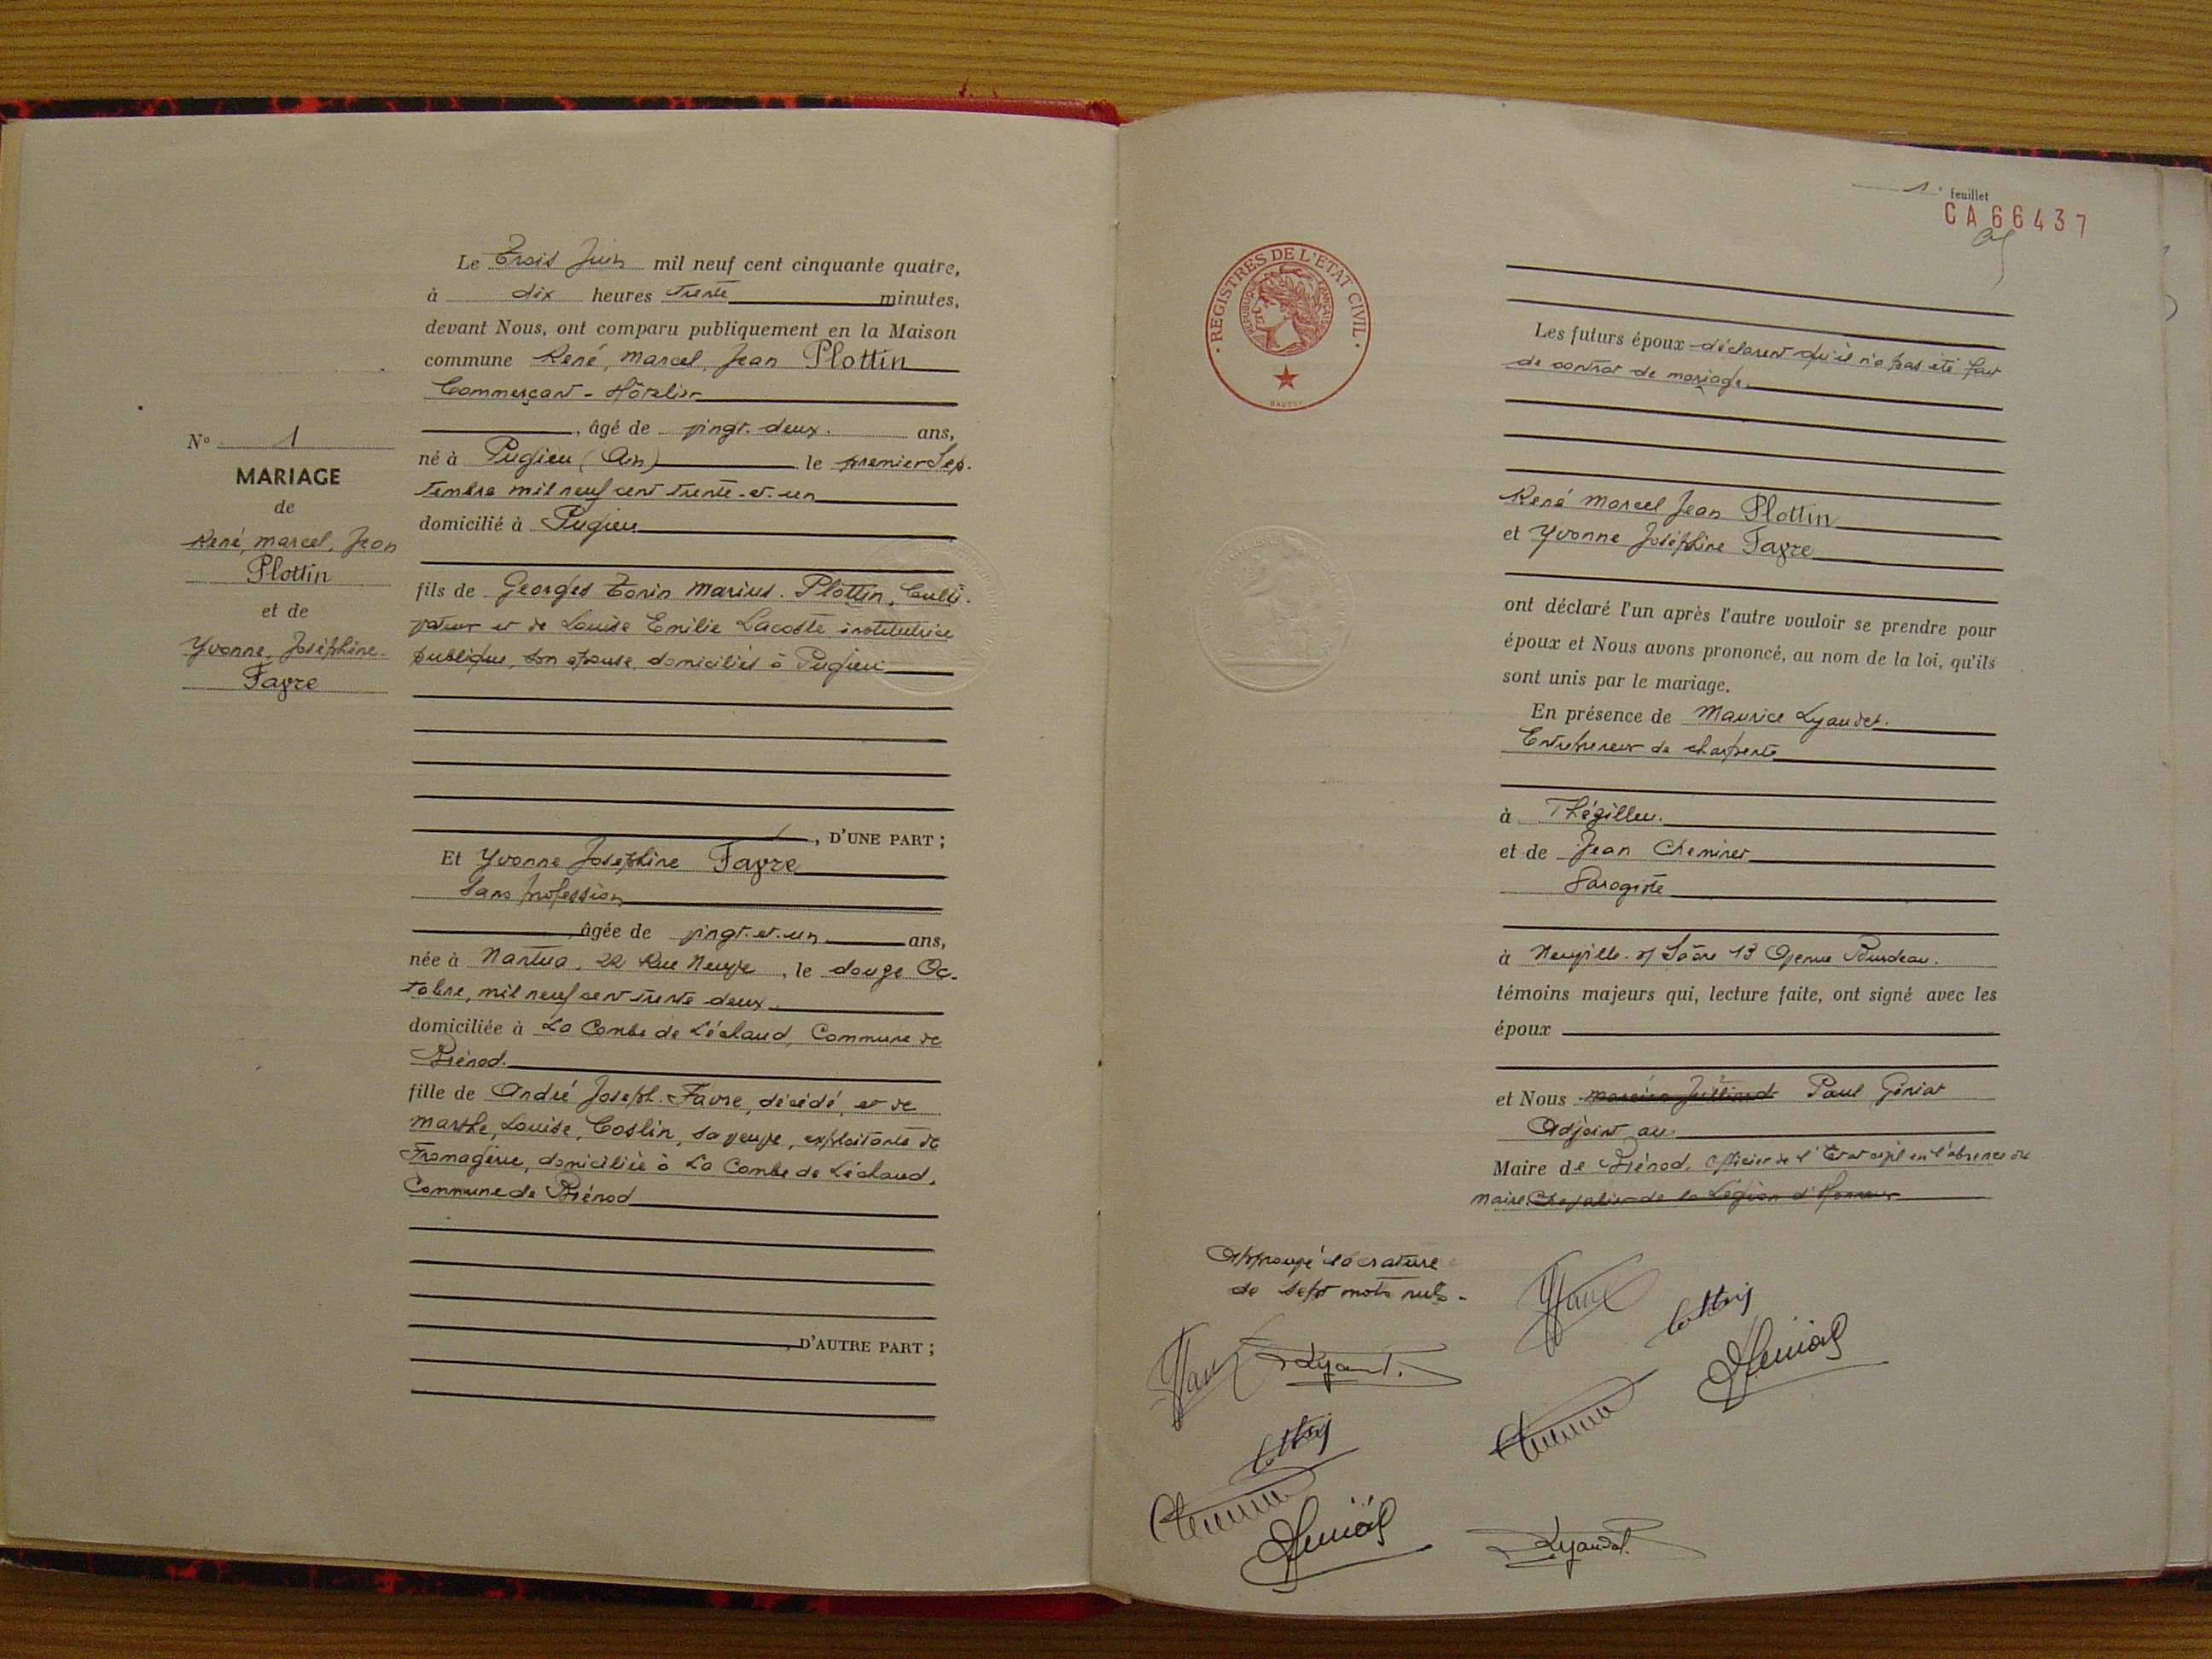 Le Trois Juin mil neuf cent cinquante quatre,
à dix heures trente minutes,
devant Nous, ont comparu publiquement en la Maison
commune René, Marcel, Jean Plottin
Commerçant - Hôtelier
, âgé de vingt-deux. ans,
né à Pugieu (Ain) le premier Sep-
tembre mil neuf cent trente-et-un
domicilié à Pugieu
fils de Georges Marius. Plottin, Culti-
vateur et de Louise Emilie Lacoste institutrice
publique, son épouse, domiciliés à Pugieu
, D'UNE PART ;
N° 1
MARIAGE
de
René, Marcel, Jean
Plottin
et de
Yvonne, Joséphine
Favre
Et Yvonne Joséphine Favre
Sans profession
, âgée de vingt-et-un ans,
née à Nantua, 22 Rue Neuve, le douze Oc-
tobre, mil neuf cent trente deux.
domiciliée à La Combe de Léchaud, Commune de
Brénod.
fille de André Joseph. Favre, décédé, et de
Marthe, Louise, Goslin, sa veuve, exploitante de
Fromagerie, domiciliée à La Combe de Léchaud,
Commune de Brénod
, D'AUTRE PART ;
1er feuillet
CA 66437
REGISTRES DE L'ETAT CIVIL
REPUBLIQUE FRANÇAISE
Les futurs époux déclarent qu'il n'a pas été fait
de contrat de mariage.
René Marcel Jean Plottin
et Yvonne Joséphine Favre
ont déclaré l'un après l'autre vouloir se prendre pour
époux et Nous avons prononcé, au nom de la loi, qu'ils
sont unis par le mariage.
En présence de Maurice Lyaudet.
Entrepreneur de charpente
à Thézillieu.
et de Jean Cheminet
Garagiste
à Neuville s/ Saône 13 Avenue Burdeau.
témoins majeurs qui, lecture faite, ont signé avec les
époux
et Nous Juilliard Paul Géniat
Adjoint au
Maire de Brénod, Officier de l'Etat civil en l'absence du
Maire. Chevalier de la Légion d'Honneur
Approuvé la rature
de sept mots nuls -
Lyaudet.